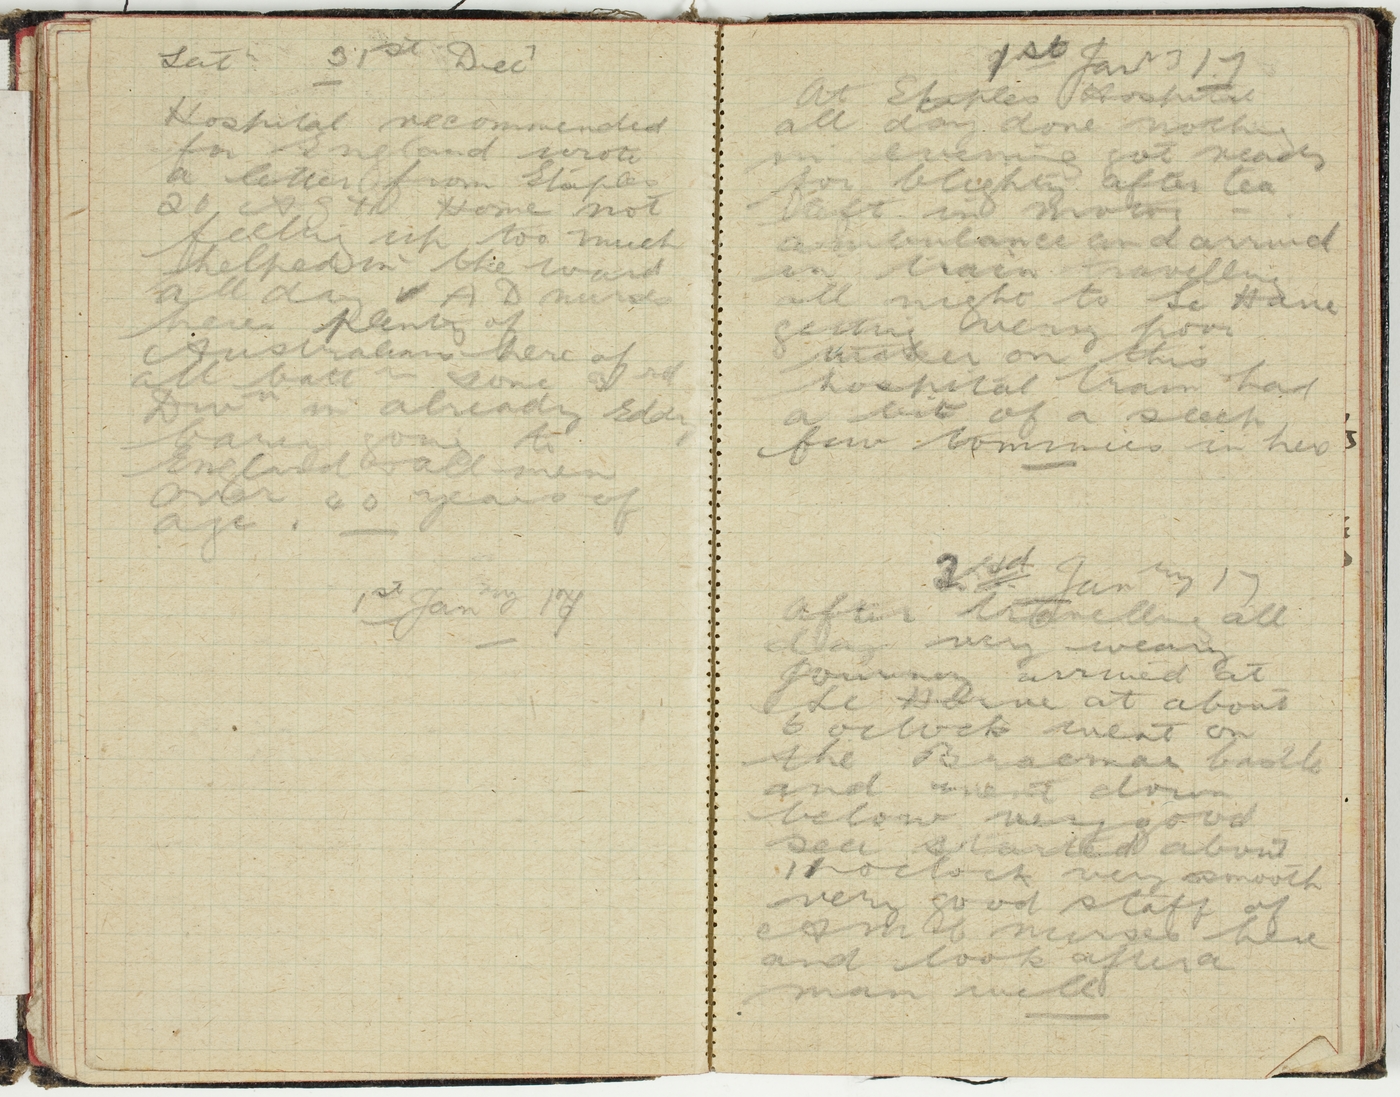 Satn 31st Decr
Hospital recommended
for England wrote
a letter from Etaples
20 A G H Home not
feeling up too much
helped in the ward
all day V A D nurses
here plenty of
Australians here of
all battns some 3rd
Divn in already Eddy
gone to
England all men
over 40 years of
age.
1st Janry 17
1st Janry 17
At Etaples Hospital
all day done nothing
in evening got ready
for blighty after tea
left in motor
ambulance and arrived
in train travelling
all night to Le Havre
getting very poor
on this
hospital train had
a bit of a
few tommies in here
2nd Janry 17
After travelling all
day very weary
journey arrived at
Le Havre at about
6 oclock went on
the Braemar Castle
and went down
below very good
sea started about
11 oclock very smooth
very good staff of
nurses here
and look after a
man well